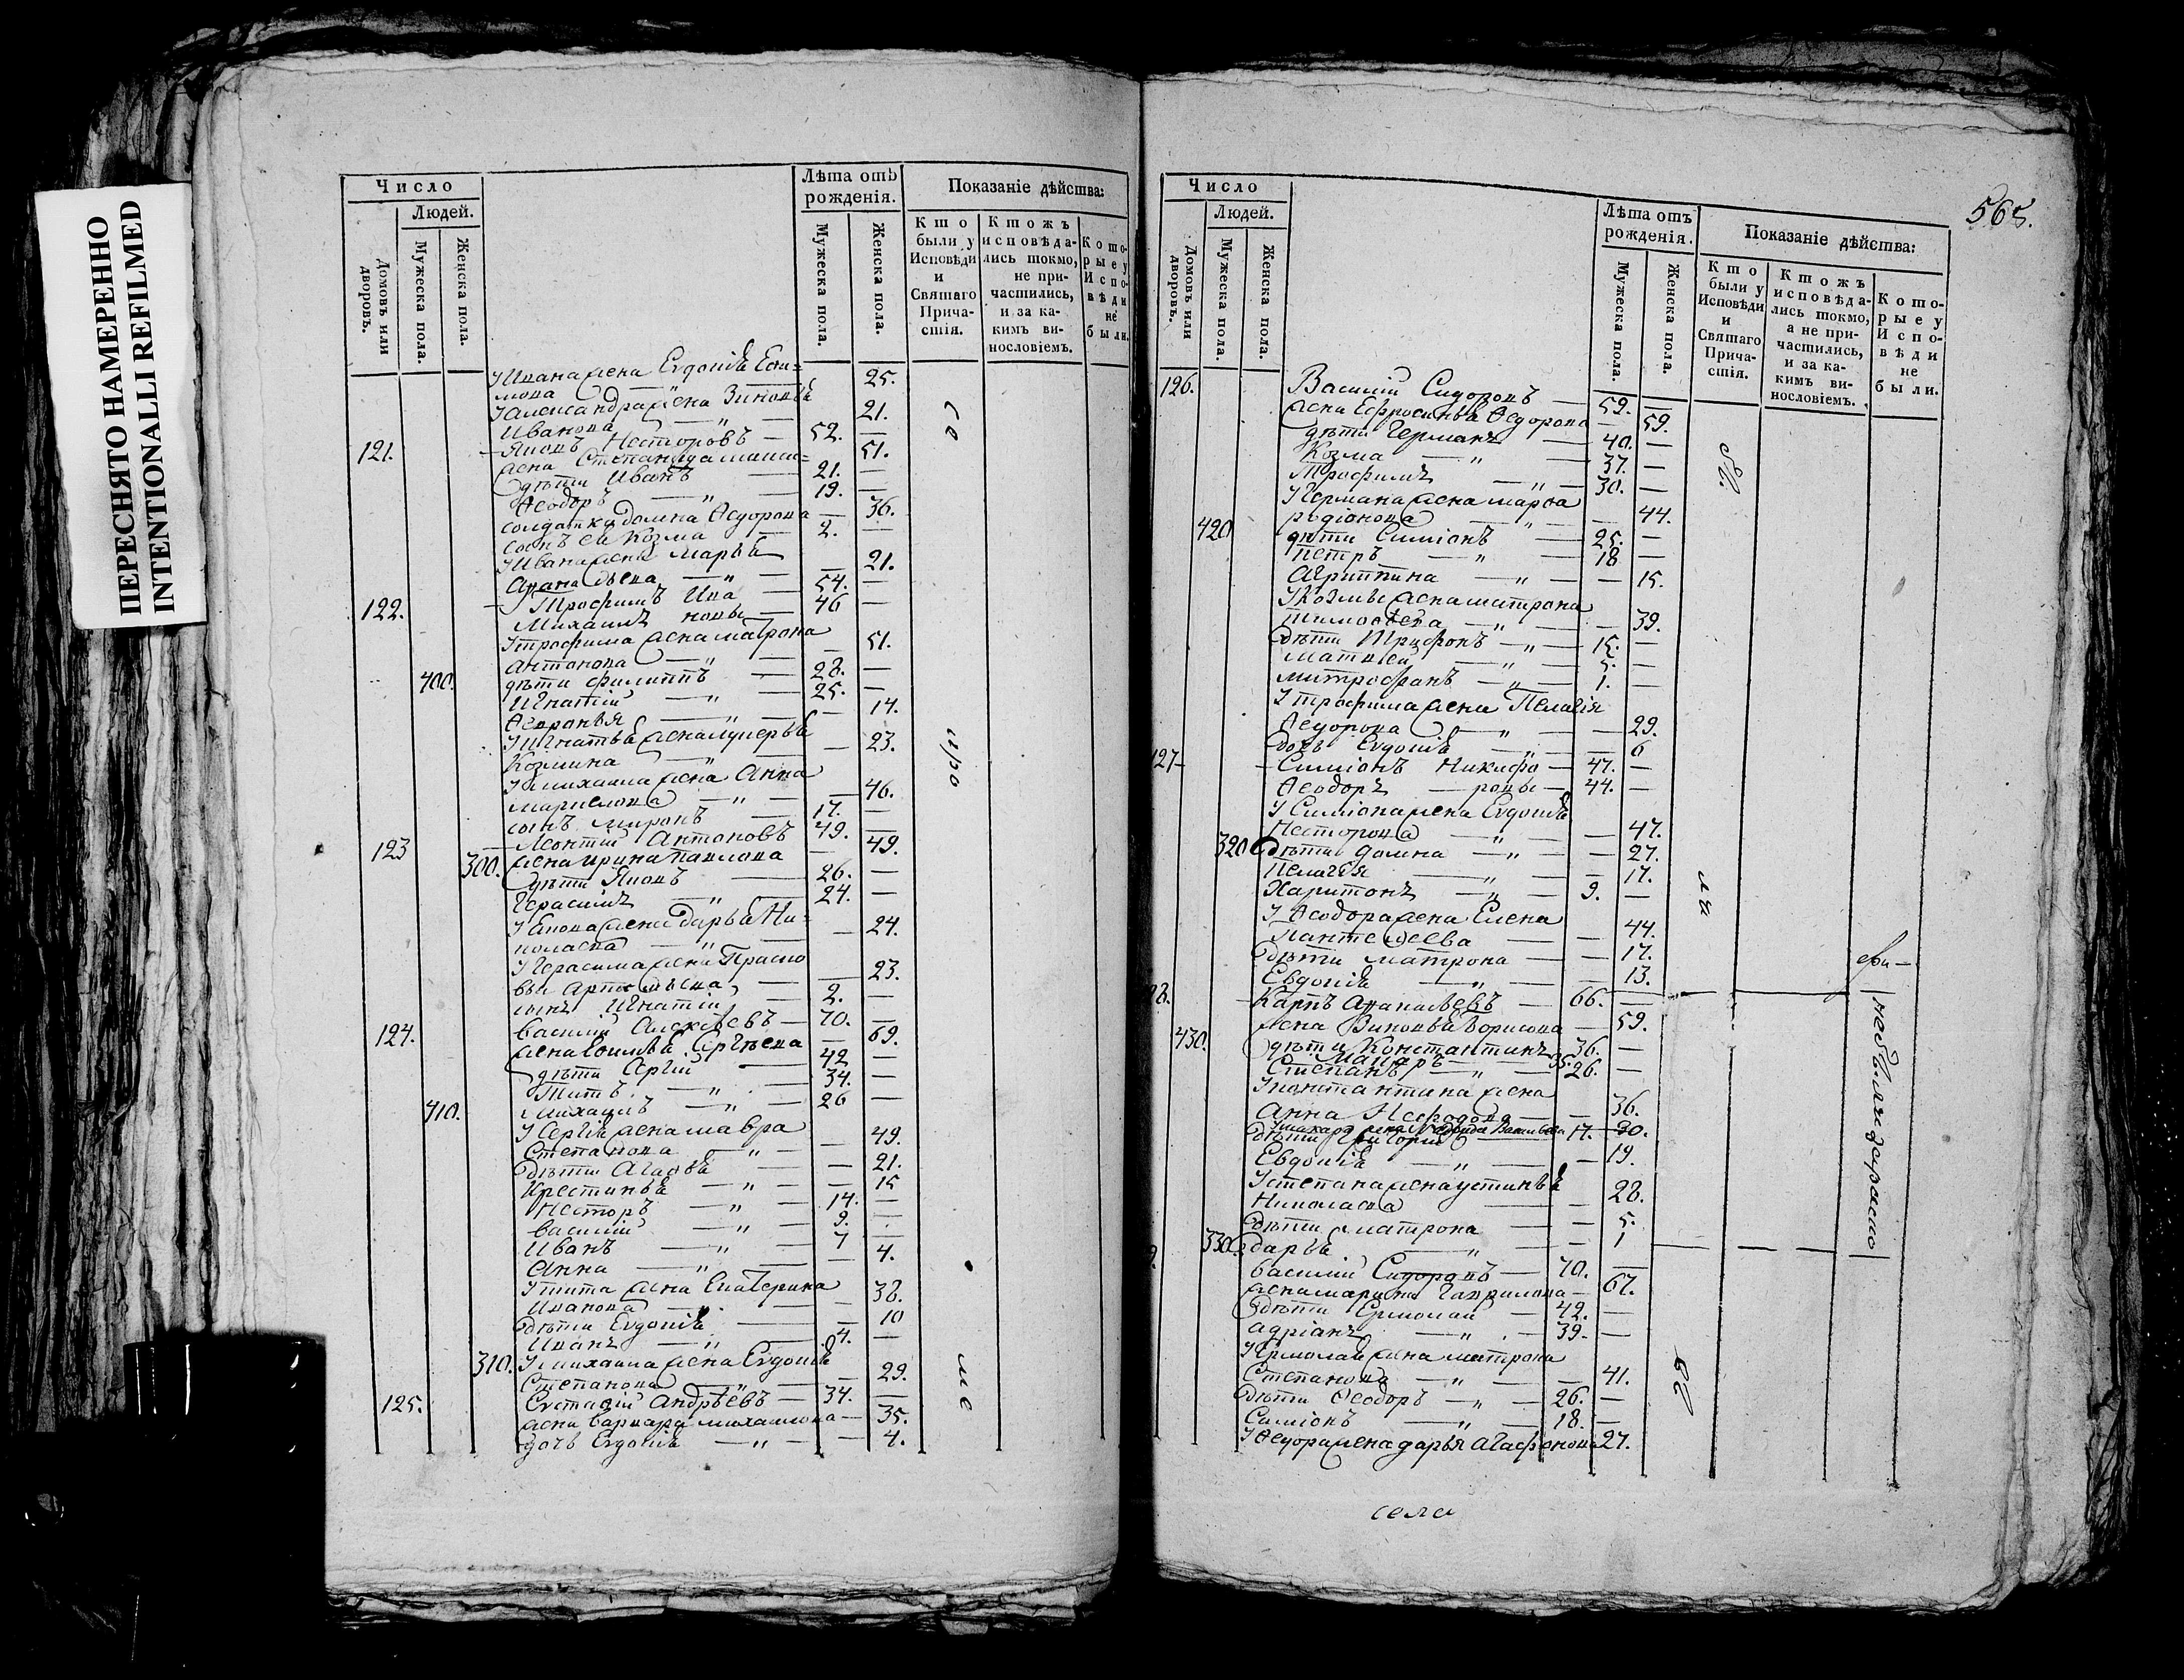 ПЕРЕСНЯТО НАМЕРЕННО
INTENTIONALLI REFILMED
Число
Людей.
Домовъ или дворовъ.
Мужеска пола.
Женска пола.
Лѣта отъ рожденія.
Мужеска пола.
Женска пола.
Показаніе дѣйства:
Кто были у Исповѣди и Святаго Причастія.
Ктожъ исповѣдались токмо, не причастились, и за какимъ винословіемъ.
Которые у Исповѣди не были.
Ивана жена Евдокія 25.
Александра жена Зиновья
Иванова — „ — 21.
121. Яковъ Несторовъ — 52. —
жена Степанида 51.
дѣти Иванъ — 21. —
Ѳеодоръ — „ — 19. —
солдатка домна Ѳедорова — 36.
сынъ ея Козма — 2. —
Ивана жена Марья
— „ — 21.
122. Трофимъ Ива — 54. —
Михаилъ новы — 46 —
У трофима жена матрона
антонова — „ — 51.
400. дѣти филиппъ — 28. —
Игнатій — „ — 25. —
Ѳевронья — „ — 14.
У игнатья жена лукерья
Козмина — „ — 23.
У михаила жена Анна
маркелова — „ — 46.
сынъ миронъ — 17. —
123 Леонтій Антоновъ 49. —
300. жена ирина павлова — 49.
дѣти Яковъ — 26. —
Герасимъ — „ — 24. —
У Якова жена дарья Ни=
колаева — „ — 24.
У Герасима жена Праско
вья — 23.
сынъ Игнатій — 2. —
124. василій Алексѣевъ — 70. —
жена — 69.
дѣти Сергій — 42 —
Титъ — „ — 34. —
410. Михаилъ — „ — 26 —
У Сергія жена мавра
Степанова — „ — 49.
дѣти Агафья — 21.
Крестинья — „ — 15
Несторъ — „ — 14. —
василій — „ — 9. —
Иванъ — „ — 7 —
Анна — „ — 4.
У тита жена Екатерина
Иванова — 38.
дѣти Евдокія — 10
Иванъ — „ — 4. —
310. У михаила жена Евдокія
Степанова — „ — 29.
125. Евстафій Андрѣевъ — 34. —
жена варвара михаилова — 35.
дочь Евдокія — „ — 4.
565.
Число
Людей.
Домовъ или дворовъ.
Мужеска пола.
Женска пола.
Лѣта отъ рожденія.
Мужеска пола.
Женска пола.
Показаніе дѣйства:
Кто были у Исповѣди и Святаго Причастія.
Ктожъ исповѣдались токмо, а не причастились, и за какимъ винословіемъ.
Которые у Исповѣди не были.
126. Василій Сидоровъ — 59. —
жена Ефросинья Ѳедорова — 59.
дѣти Германъ — 40. —
Козма — „ — 37. —
Трофимъ — „ — 30. —
У Германа жена марѳа
родіонова — „ — 44.
420 дѣти Симіонъ — 25. —
петръ — „ — 18
Агриппина — „ — 15.
У Козмы жена матрона
тимоѳеева — „ — 39.
дѣти Трифонъ — „ — 15. —
Матвей — „ — 5. —
митрофанъ — „ — 1. —
У трофима жена Пелагія
Ѳедорова — „ — 29.
дочь Евдокія — „ — 6
127 Симіонъ Никифо — 47. —
Ѳеодоръ — ровы — 44. —
У Симіона жена Евдокія
Несторова — „ — 47.
320 дѣти домна — „ — 27.
Пелагея — „ — 17.
Харитонъ — „ — 9. —
У Ѳеодора жена Елена
Пантелеева — 44.
дѣти матрона — 17.
Евдокія — „ — 13.
Карпъ 66. —
430. жена Зиновья борисова — 59.
дѣти Константинъ 36. —
Макаръ 35.
Степанъ — „ — 26. —
У константина жена
Анна — 36.
30.
дѣти Григорій 17. —
Евдокія — „ — 19.
У степана жена устинья
Николаева — 28.
дѣти матрона — 5.
330. дарья — „ — 1
василій Сидоровъ — 70. —
жена марина гаврилова — 67.
дѣти Ермолай — 42. —
адріанъ — „ — 39. —
У Ермолая жена матрона
Степанова — „ — 41.
дѣти Ѳеодоръ — „ — 26. —
Симіонъ — „ — 18. —
У Ѳедора жена дарья Агафонова 27.
села